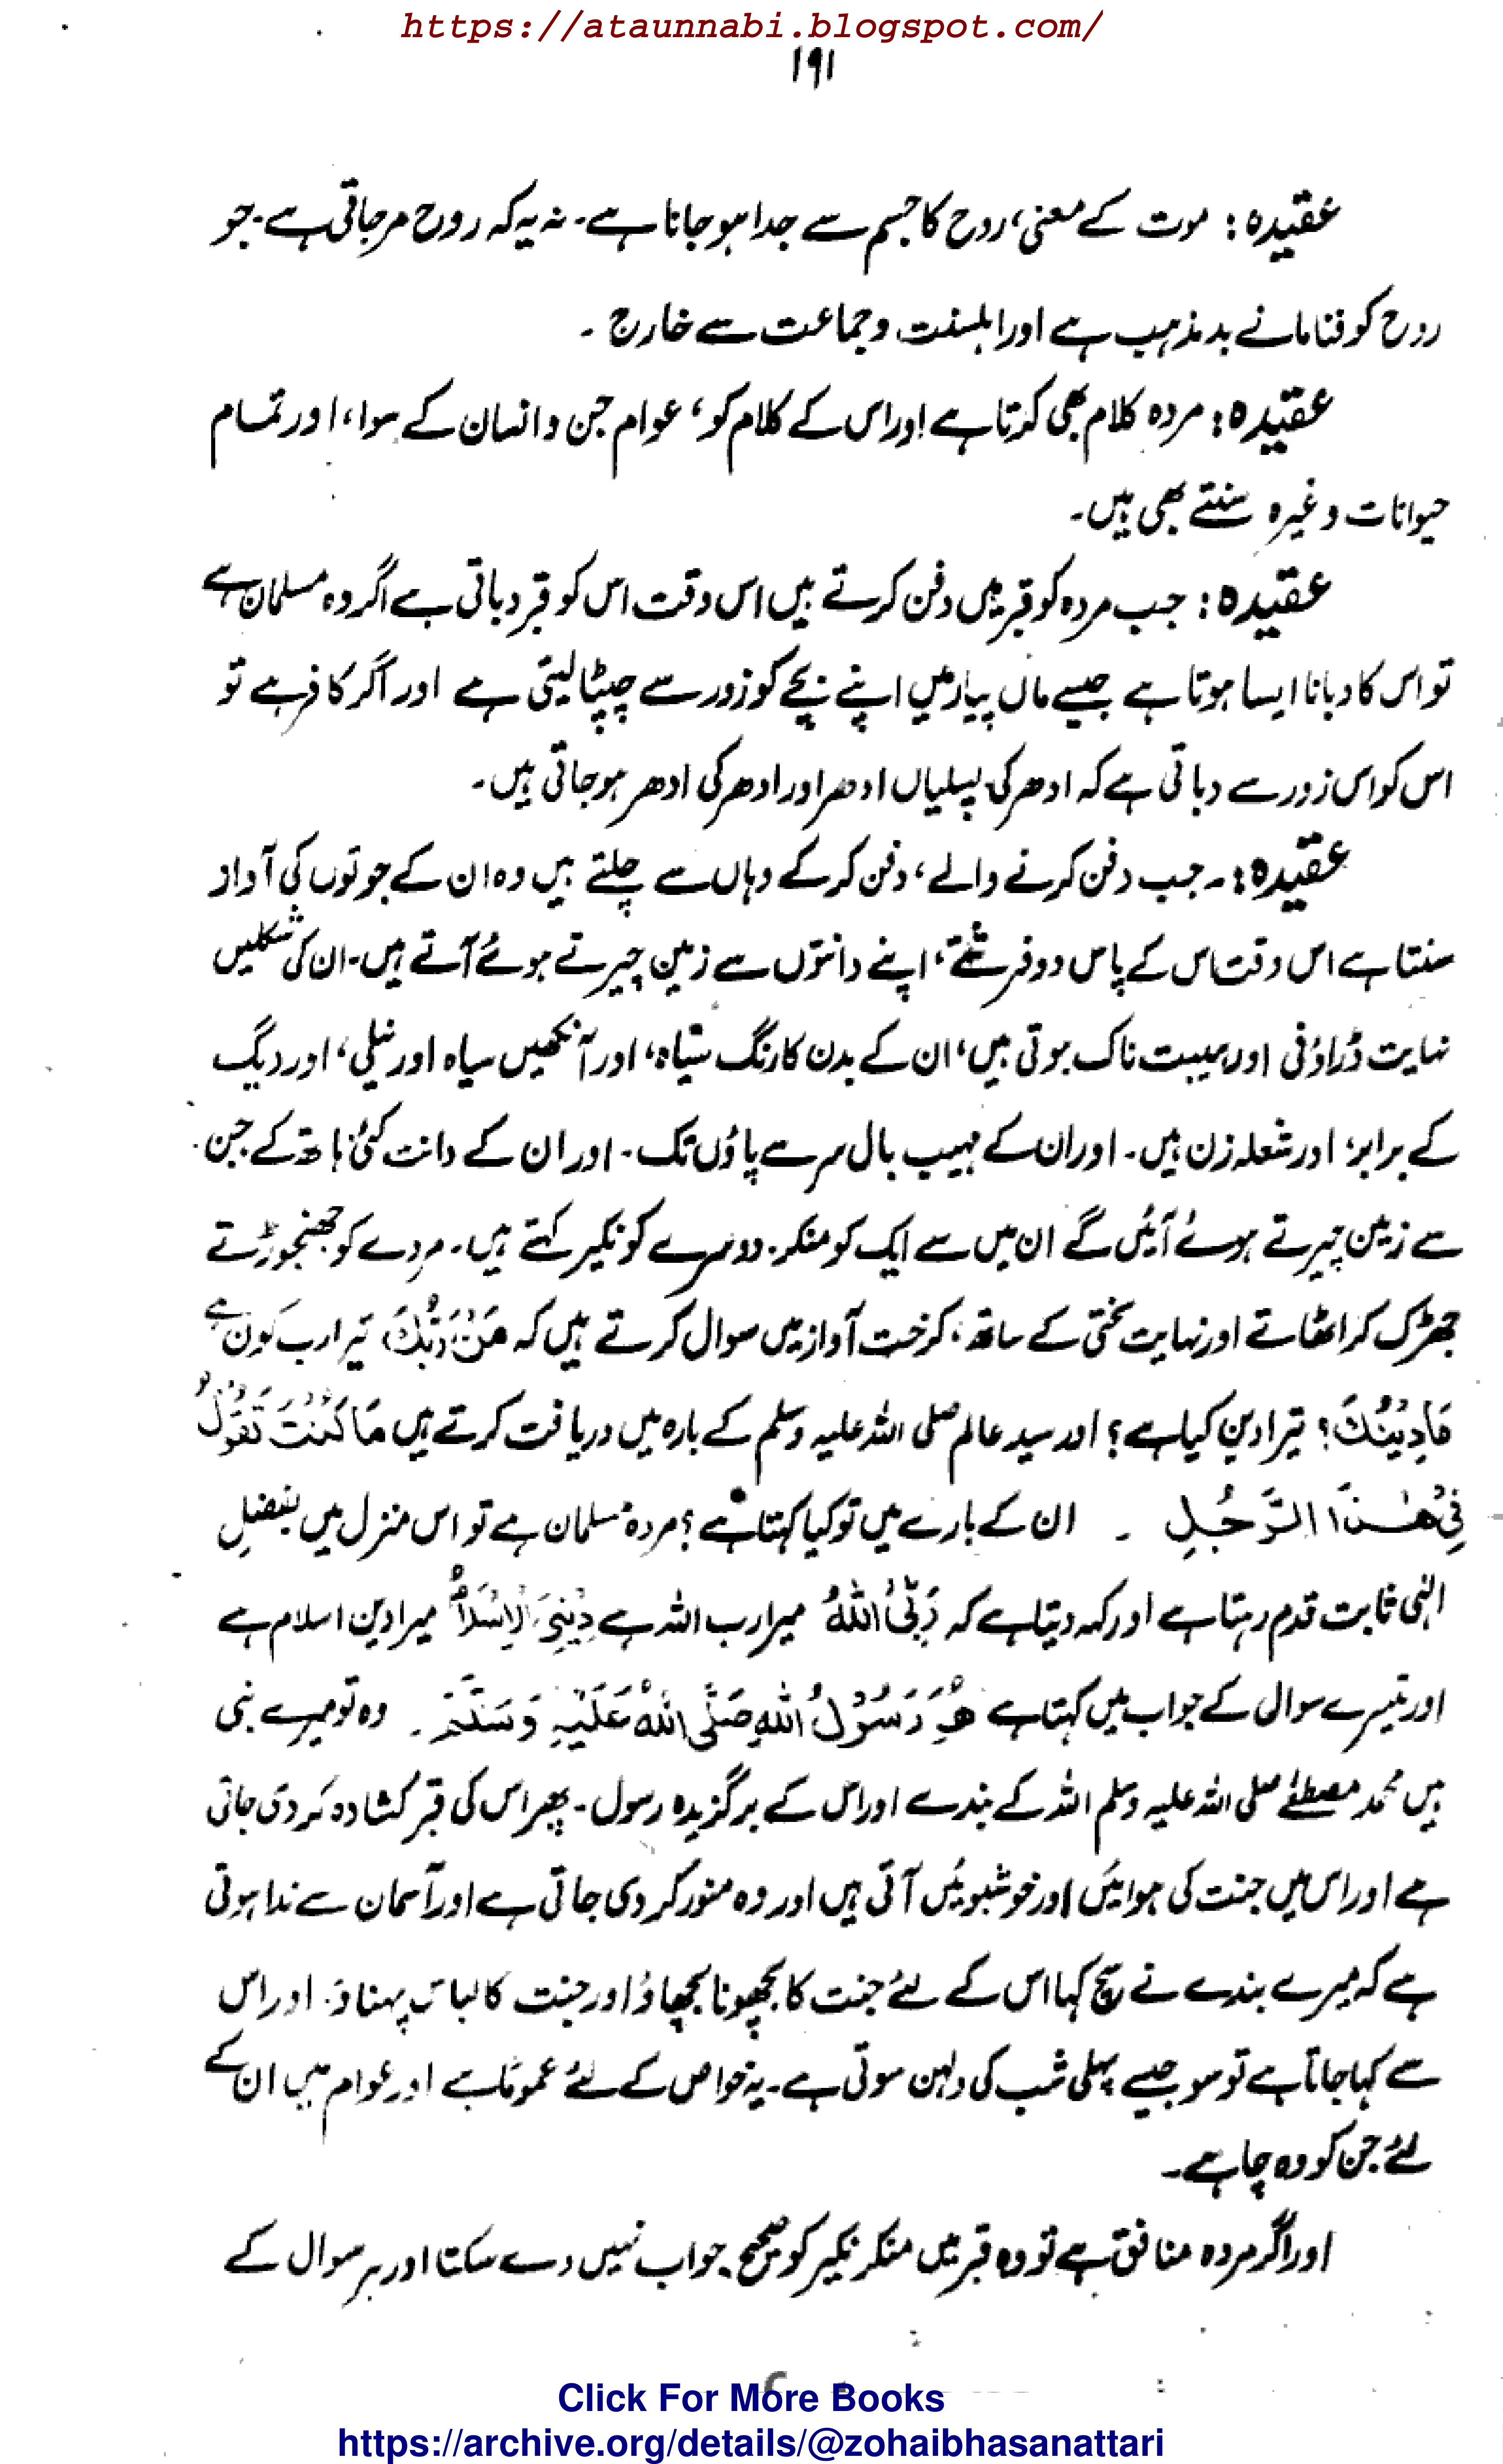 https://ataunnabi.blogspot.com/
۱۹۱
عقیدہ: موت کے معنی، روح کا جسم سے جدا ہو جانا ہے۔ نہ یہ کہ روح مر جاتی ہے۔ جو
روح کو فنا مانے بد مذہب ہے اور اہلسنت و جماعت سے خارج ۔
عقیدہ: مردہ کلام بھی کرتا ہے اور اس کے کلام کو، عوام جن و انسان کے سوا، اور تمام
حیوانات وغیرہ سنتے بھی ہیں۔
عقیدہ: جب مردہ کو قبر میں دفن کرتے ہیں اس وقت اس کو قبر دباتی ہے اگر وہ مسلمان ہے
تو اس کا دبانا ایسا ہوتا ہے جیسے ماں پیار میں اپنے بچے کو زور سے چپٹا لیتی ہے اور اگر کافر ہے تو
اس کو اس زور سے دباتی ہے کہ ادھر کی پسلیاں ادھر اور ادھر کی ادھر ہو جاتی ہیں۔
عقیدہ:۔ جب دفن کرنے والے، دفن کر کے وہاں سے چلتے ہیں وہ ان کے جوتوں کی آواز
سنتا ہے اس وقت اس کے پاس دو فرشتے، اپنے دانتوں سے زمین چیرتے ہوئے آتے ہیں۔ ان کی شکلیں
نہایت ڈراؤنی اور ہیبت ناک ہوتی ہیں، ان کے بدن کا رنگ سیاہ، اور آنکھیں سیاہ اور نیلی، اور دیگ
کے برابر، اور شعلہ زن ہیں۔ اور ان کے مہیب بال سر سے پاؤں تک۔ اور ان کے دانت کئی ہاتھ کے جن
سے زمین چیرتے ہوئے آئیں گے ان میں سے ایک کو منکر۔ دوسرے کو نکیر کہتے ہیں۔ مردے کو جھنجوڑتے
جھڑک کر اٹھاتے اور نہایت سختی کے ساتھ، کرخت آواز میں سوال کرتے ہیں کہ مَنْ رَبُّكَ تیرا رب کون ہے
مَا دِیْنُكَ؟ تیرا دین کیا ہے؟ اور سید عالم صلی اللہ علیہ وسلم کے بارہ میں دریافت کرتے ہیں مَا كُنْتَ تَقُوْلُ
فِیْ هٰذَا الرَّجُلِ ۔ ان کے بارے میں تو کیا کہتا ہے؟ مردہ مسلمان ہے تو اس منزل میں بفضلِ
الٰہی ثابت قدم رہتا ہے اور کہہ دیتا ہے کہ رَبِّیَ اللهُ میرا رب اللہ ہے دِیْنِیَ الْاِسْلَامُ میرا دین اسلام ہے
اور تیسرے سوال کے جواب میں کہتا ہے هُوَ رَسُوْلُ اللهِ صَلَّی اللهُ عَلَیْهِ وَسَلَّمَ ۔ وہ تو میرے نبی
ہیں محمد مصطفےٰ صلی اللہ علیہ وسلم اللہ کے بندے اور اس کے برگزیدہ رسول۔ پھر اس کی قبر کشادہ کر دی جاتی
ہے اور اس میں جنت کی ہوائیں اور خوشبوئیں آتی ہیں اور وہ منور کر دی جاتی ہے اور آسمان سے ندا ہوتی
ہے کہ میرے بندے نے سچ کہا اس کے لئے جنت کا بچھونا بچھاؤ اور جنت کا لباس پہناؤ۔ اور اس
سے کہا جاتا ہے تو سو جیسے پہلی شب کی دلہن سوتی ہے۔ یہ خواص کے لئے عموماً ہے اور عوام میں ان کے
لئے جن کو وہ چاہے۔
اور اگر مردہ منافق ہے تو وہ قبر میں منکر نکیر کو صحیح جواب نہیں دے سکتا اور ہر سوال کے
Click For More Books
https://archive.org/details/@zohaibhasanattari